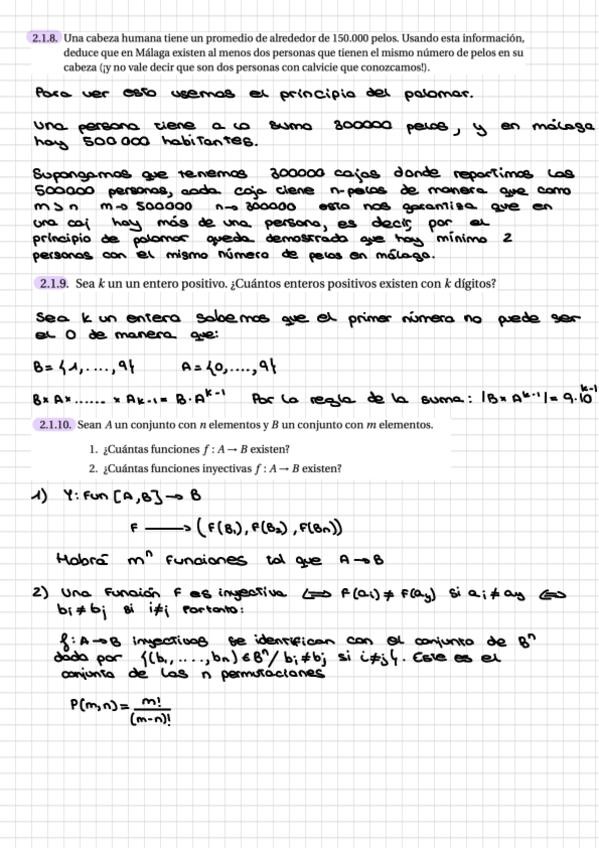 2.1.8. Una cabeza humana tiene un promedio de alrededor de 150.000 pelos. Usando esta información,
deduce que en Málaga existen al menos dos personas que tienen el mismo número de pelos en su
cabeza (¡y no vale decir que son dos personas con calvicie que conozcamos!).
Para ver esto usemos el principio del palomar.
Una persona tiene a lo sumo 300000 pelos, y en málaga
hay 500 000 habitantes.
Supongamos que tenemos 300000 cajas donde repartimos las
500000 personas, cada caja tiene n-pelos de manera que como
m > n m→ 500000 n→ 300000 esto nos garantiza que en
una caj hay más de una persona, es decir, por el
principio de palomar queda demostrado que hay mínimo 2
personas con el mismo número de pelos en málaga.
2.1.9. Sea k un un entero positivo. ¿Cuántos enteros positivos existen con k dígitos?
Sea k un entero sabemos que el primer número no puede ser
el 0 de manera que:
B = {1, ...., 9} A = {0, ...., 9}
B × A × ...... × Aₖ₋₁ = B · Aᵏ⁻¹ Por la regla de la suma: |B × Aᵏ⁻¹| = 9·10ᵏ⁻¹
2.1.10. Sean A un conjunto con n elementos y B un conjunto con m elementos.
1. ¿Cuántas funciones f : A → B existen?
2. ¿Cuántas funciones inyectivas f : A → B existen?
1) Y: Fun [A,B] → B
F → (F(B₁), F(B₂), F(Bn))
Habrá mⁿ funciones tal que A→B
2) Una función F es inyectiva ⇔ F(ai) ≠ F(ay) si ai ≠ ay ⇔
bi ≠ bj si i≠j Por tanto:
f: A→B inyectivas se identifican con el conjunto de Bⁿ
dado por {(b₁, ...., bn) ∈ Bⁿ / bi ≠ bj si i≠j}. Este es el
conjunto de las n permutaciones
P(m,n) = m! / (m-n)!